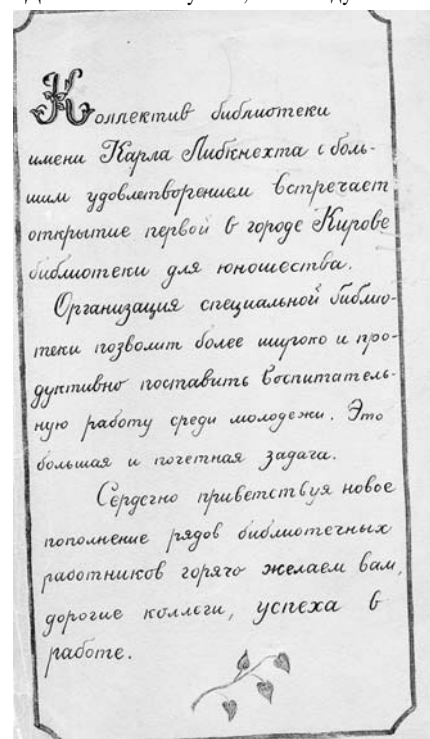 Коллектив библиотеки
имени Карла Либкнехта с боль-
шим удовлетворением встречает
открытие первой в городе Кирове
библиотеки для юношества.
Организация специальной библио-
теки позволит более широко и про-
дуктивно поставить воспитатель-
ную работу среди молодежи. Это
большая и почетная задача.
Сердечно приветствуя новое
пополнение рядов библиотечных
работников горячо желаем вам,
дорогие коллеги, успеха в
работе.